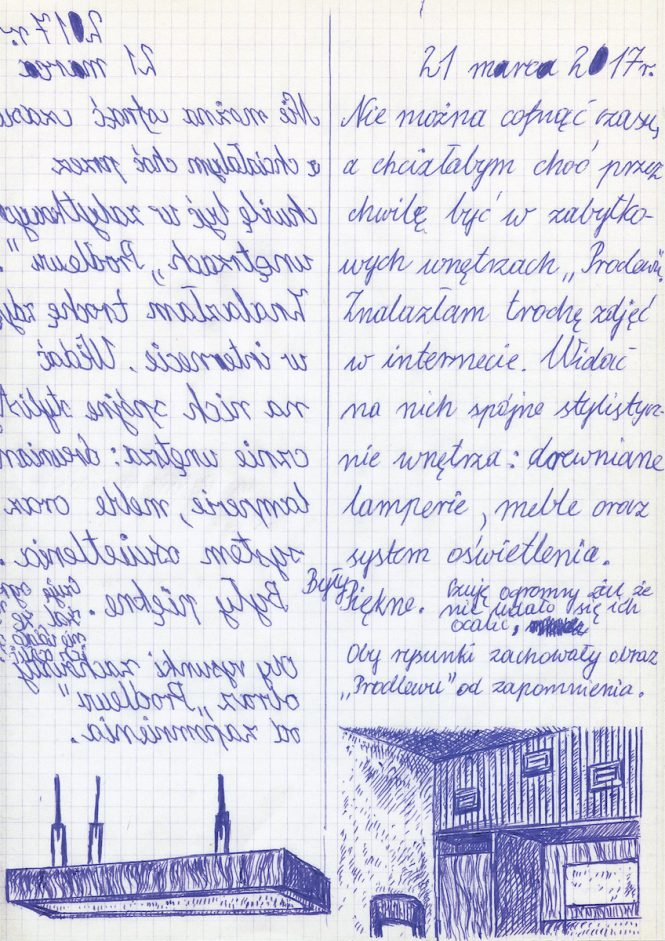 2017 r.
21 marca
Nie można cofnąć czasu
a chciałabym choć przez
chwilę być w
wnętrzach „Prodlewu".
Znalazłam trochę
w internecie. Widać
na nich spójne
cznie wnętrza:
lamperie, meble oraz
system oświetlenia.
Były piękne.
Czuję
żal że
Oby rysunki zachowały
obraz „Prodlewu"
od zapomnienia.
21 marca 2017r.
Nie można cofnąć czasu,
a chciałabym choć przez
chwilę być w zabytko-
wych wnętrzach „Prodlewu".
Znalazłam trochę zdjęć
w internecie. Widać
na nich spójne stylistycz-
nie wnętrza: drewniane
lamperie, meble oraz
system oświetlenia.
Były Piękne. Czuję ogromny żal że
nie udało się ich
ocalić,
Oby rysunki zachowały obraz
„Prodlewu" od zapomnienia.